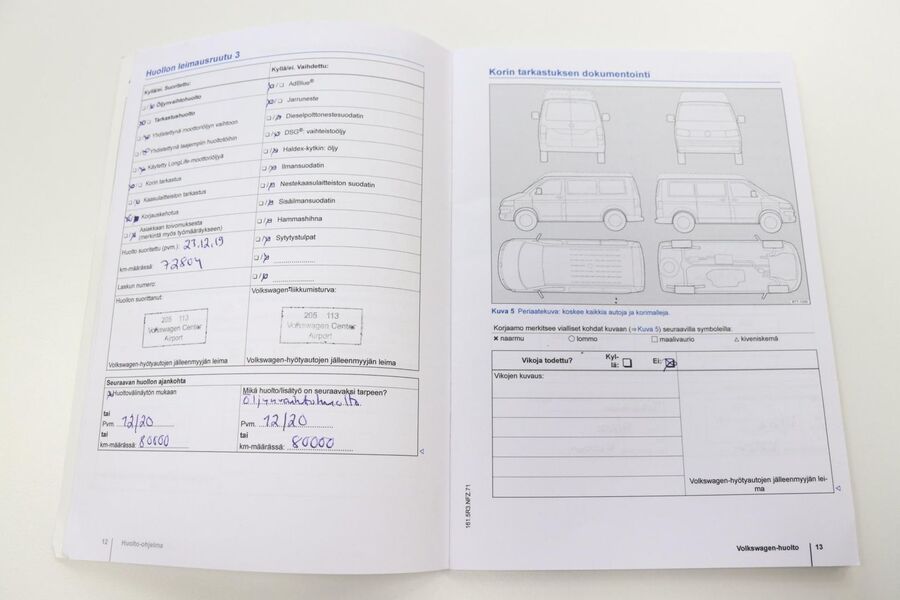 Huollon leimausruutu 3
Kyllä/ei, Suoritettu:
Öljynvaihtohuolto
Tarkastushuolto
Yhdistettynä moottoriöljyn vaihtoon
Yhdistettynä laajempiin huoltotöihin
Käytetty LongLife-moottoriöljyä
Korin tarkastus
Kaasulaitteiston tarkastus
Korjauskehotus
Asiakkaan toivomuksesta
(merkintä myös työmääräykseen)
Huolto suoritettu (pvm.): 23.12.19
km-määrässä: 72804
Laskun numero:
Huollon suorittanut:
205 113
Volkswagen Center
Airport
Volkswagen-hyötyautojen jälleenmyyjän leima
Kyllä/ei, Vaihdettu:
AdBlue®
Jarruneste
Dieselpolttonestesuodatin
DSG®: vaihteistoöljy
Haldex-kytkin: öljy
Ilmansuodatin
Nestekaasulaitteiston suodatin
Sisäilmansuodatin
Hammashihna
Sytytystulpat
Volkswagen-liikkumisturva:
205 113
Volkswagen Center
Airport
Volkswagen-hyötyautojen jälleenmyyjän leima
Seuraavan huollon ajankohta
Huoltovälinäytön mukaan
tai
Pvm. 12/20
tai
km-määrässä: 80000
Mikä huolto/lisätyö on seuraavaksi tarpeen?
Öljynvaihtohuolto
Pvm. 12/20
tai
km-määrässä: 80000
12 Huolto-ohjelma
Korin tarkastuksen dokumentointi
Kuva 5 Periaatekuva: koskee kaikkia autoja ja korimalleja.
Korjaamo merkitsee vialliset kohdat kuvaan (⇒ Kuva 5) seuraavilla symboleilla:
× naarmu ○ lommo □ maalivaurio △ kiveniskemä
Vikoja todettu? Kyl-
lä: Ei:
Vikojen kuvaus:
Volkswagen-hyötyautojen jälleenmyyjän lei-
ma
161.5R3.NFZ.71
Volkswagen-huolto 13